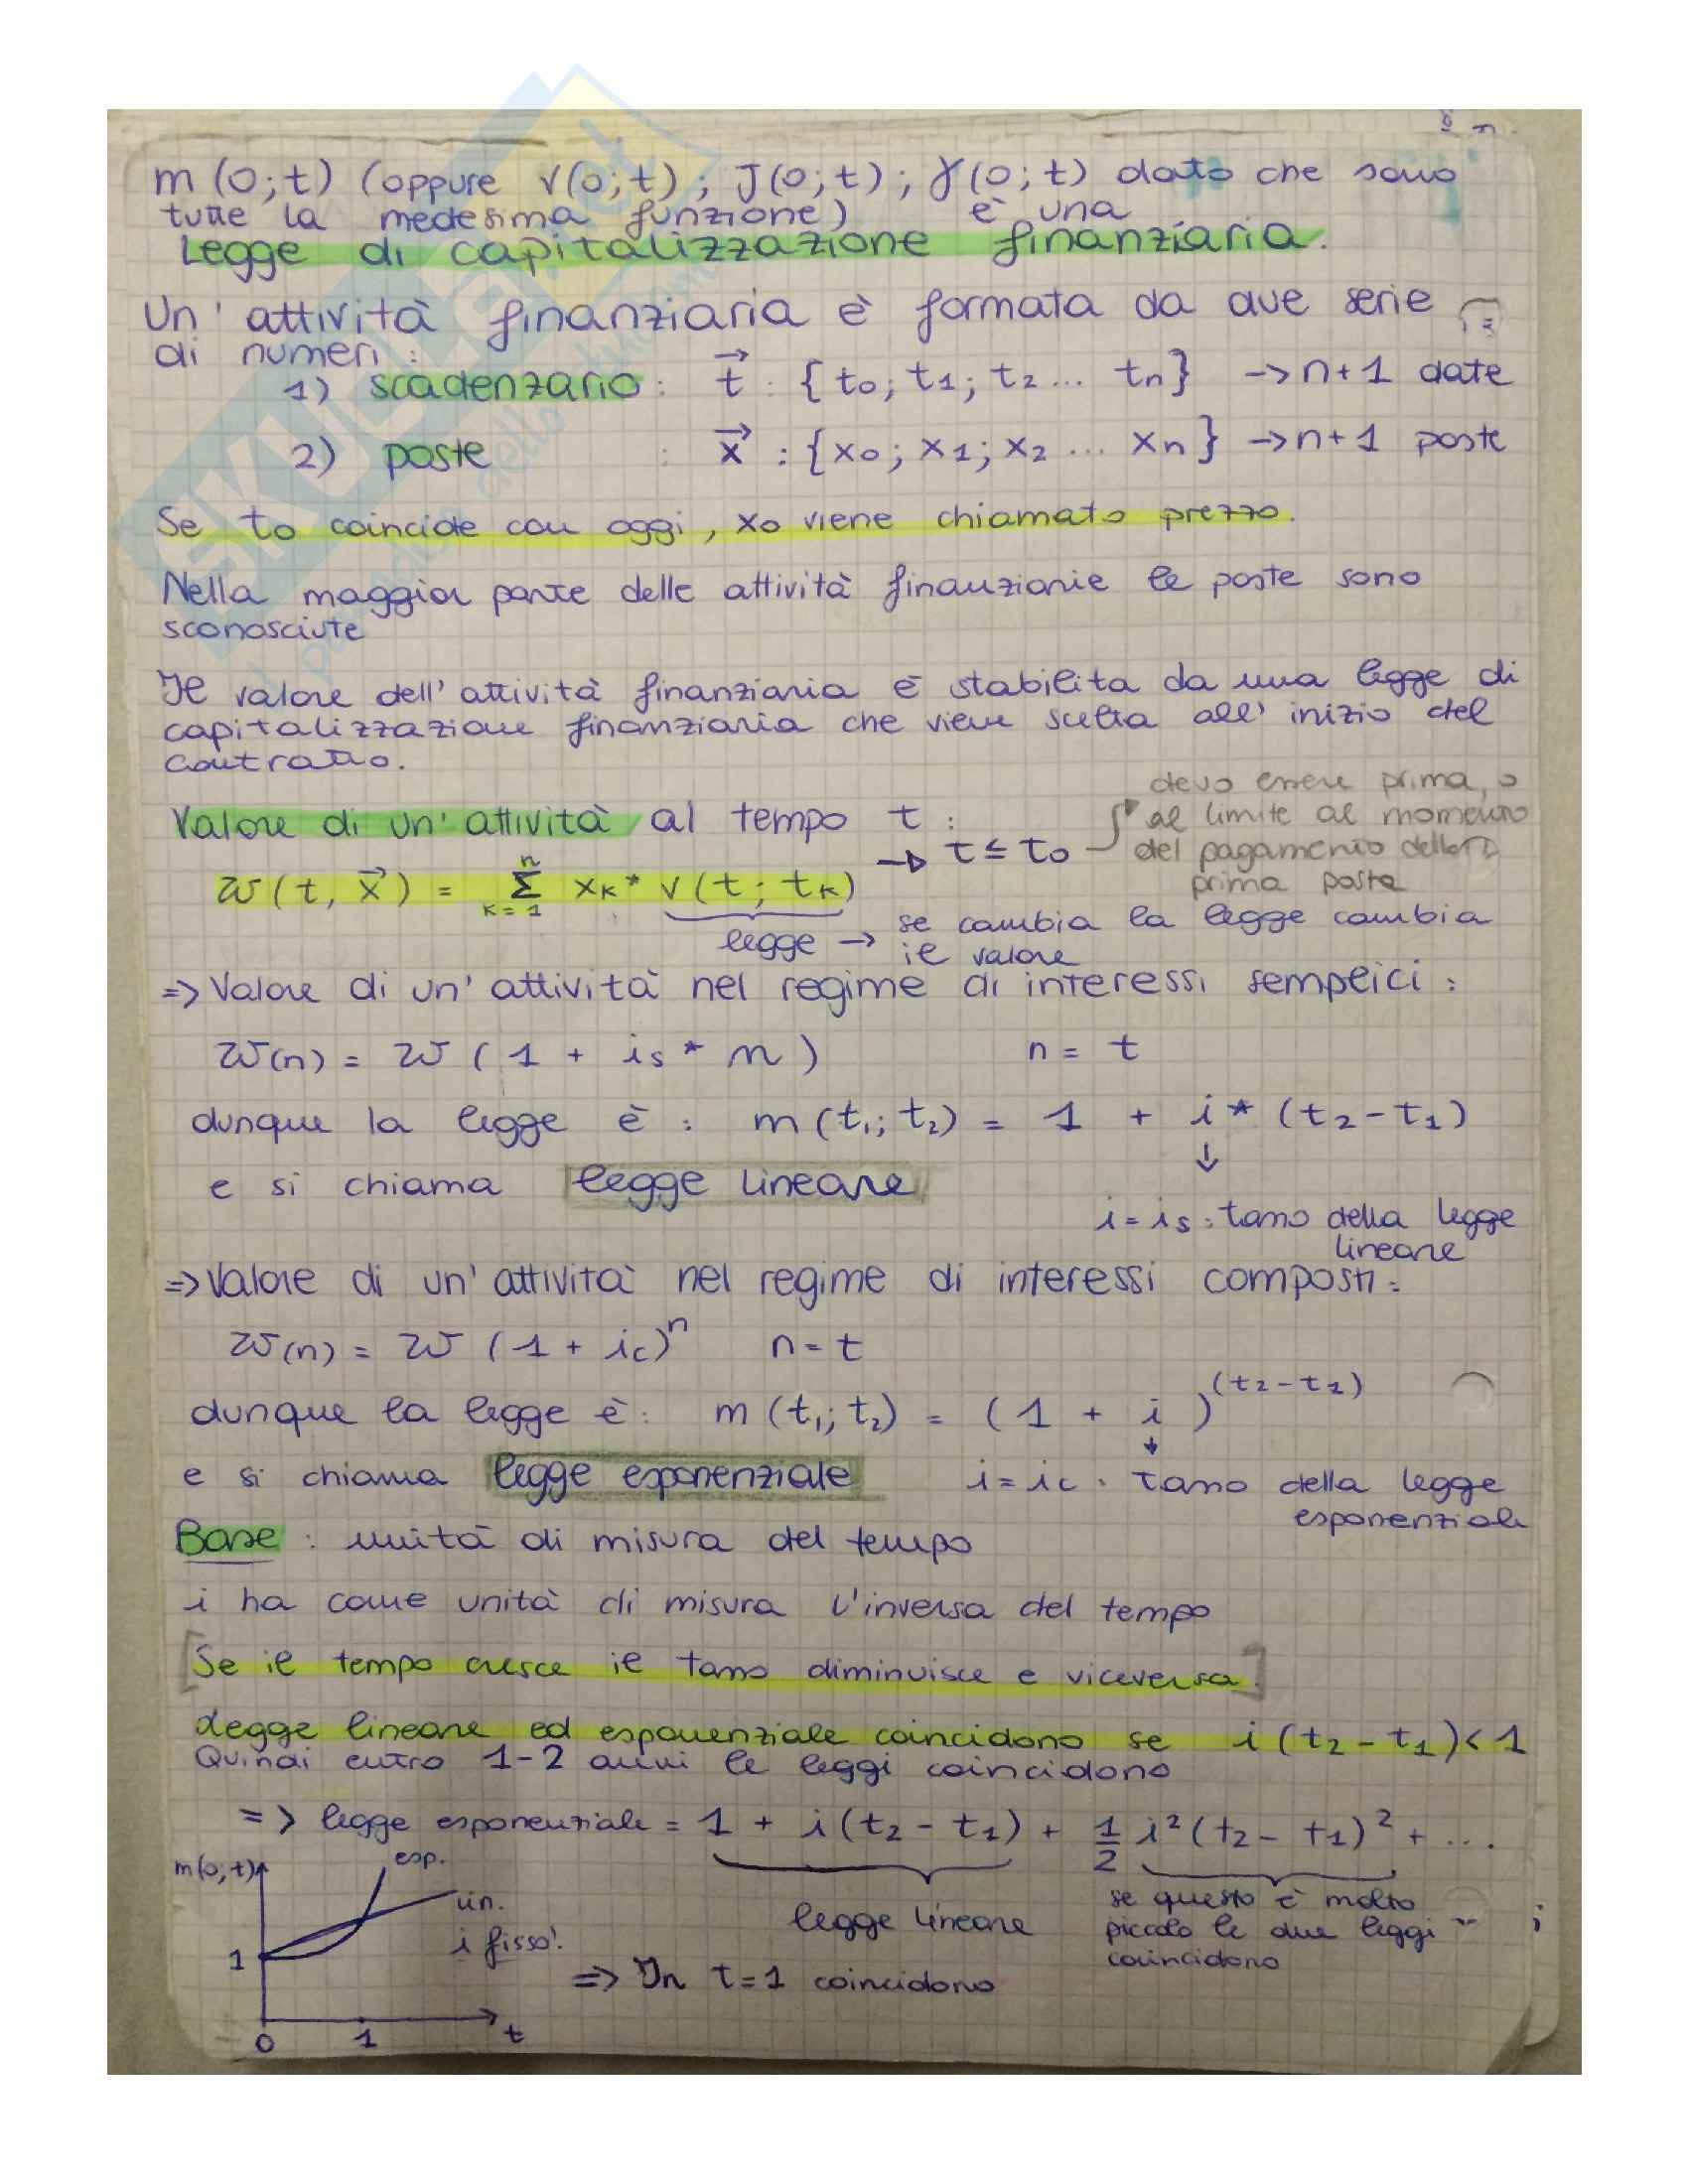 m(0;t) (oppure v(0;t); J(0;t); γ(0;t) dato che sono
tutte la medesima funzione) è una
Legge di capitalizzazione finanziaria.
Un'attività finanziaria è formata da due serie
di numeri:
1) scadenzario: t⃗ : {t0; t1; t2... tn} -> n+1 date
2) poste : x⃗ : {x0; x1; x2... xn} -> n+1 poste
Se t0 coincide con oggi, x0 viene chiamato prezzo.
Nella maggior parte delle attività finanziarie le poste sono
sconosciute
Il valore dell'attività finanziaria è stabilita da una legge di
capitalizzazione finanziaria che viene scelta all'inizio del
contratto.
devo essere prima, o
Valore di un'attività al tempo t :
al limite al momento
-> t ≤ t0
del pagamento della
prima posta
W(t, x⃗) = Σ xk * v(t; tk)
n
k=1
legge -> se cambia la legge cambia
il valore
=> Valore di un'attività nel regime di interessi semplici:
W(n) = W (1 + is * n) n = t
dunque la legge è : m(t1; t2) = 1 + i * (t2-t1)
↓
e si chiama legge lineare
i = is : tasso della legge
lineare
=> Valore di un'attività nel regime di interessi composti:
W(n) = W (1 + ic)^n n = t
dunque la legge è: m(t1; t2) = (1 + i)^(t2-t1)
↓
e si chiama legge esponenziale i = ic : tasso della legge
esponenziale
Base : unità di misura del tempo
i ha come unità di misura l'inversa del tempo
[Se il tempo cresce il tasso diminuisce e viceversa.]
Legge lineare ed esponenziale coincidono se i(t2-t1)<1
Quindi entro 1-2 anni le leggi coincidono
=> legge esponenziale = 1 + i(t2-t1) + 1/2 i²(t2-t1)² + ...
m(0;t) esp.
lin.
i fisso!
legge lineare
se questo è molto
piccolo le due leggi
coincidono
1
=> In t=1 coincidono
0 1 t